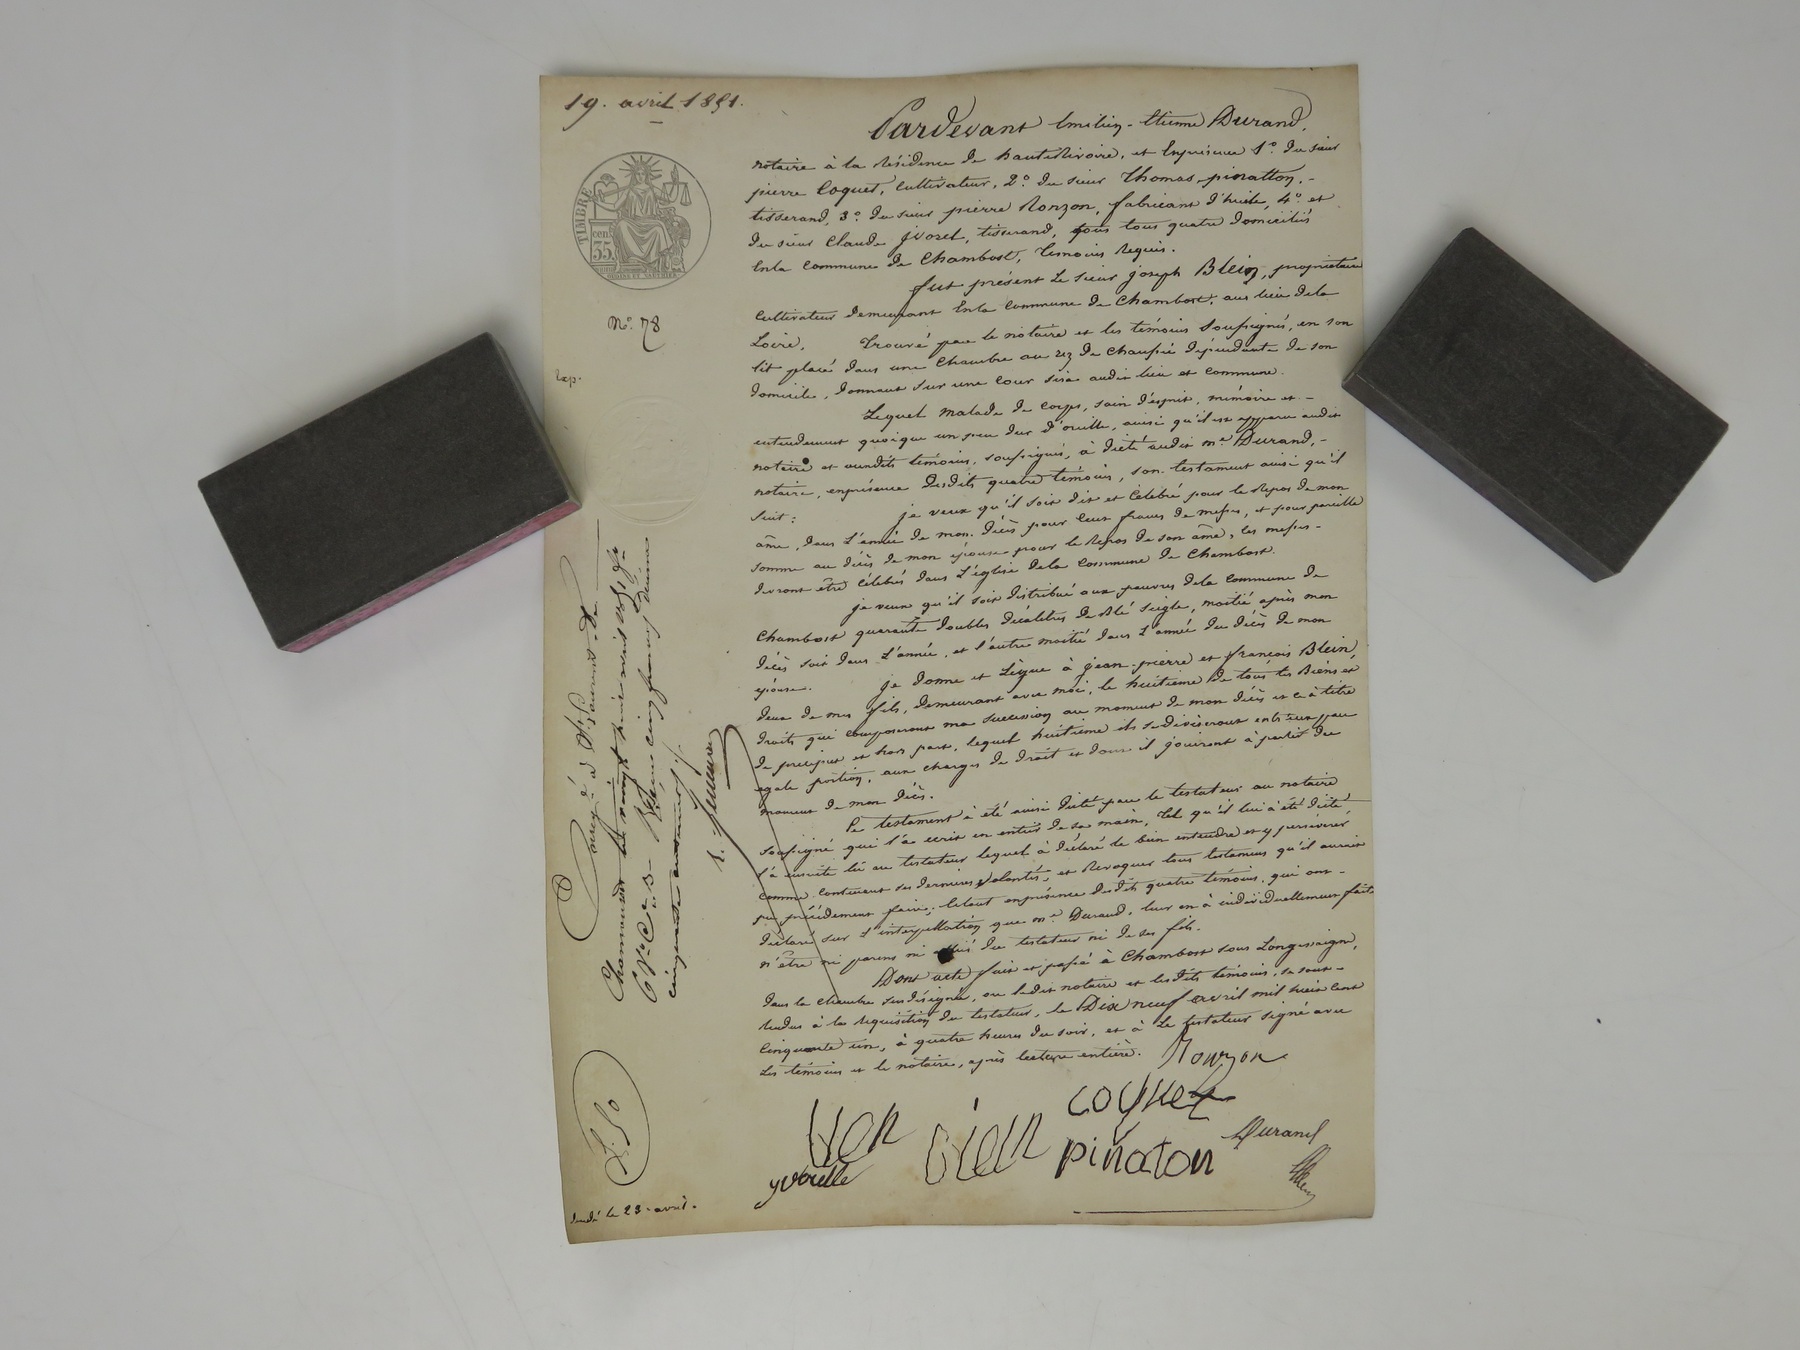 19. avril 1851.
TIMBRE
cen.
35.
N.º 78
Exp.
Pardevant Emilien-Etienne Durand,
notaire à la résidence de hauterivoire, et Enprésence 1.º du sieur
pierre Coquet, Cultivateur, 2.º du sieur Thomas pinatton,-
tisserand, 3.º du sieur pierre Ronzon, fabricant d'huile, 4.º et
du sieur Claude jvorel, tisserand, tous quatre domiciliés
Enla commune de Chambost, témoins requis.
fut présent Le sieur joseph Blein, propriétaire
Cultivateur demeurant Enla commune de Chambost, aux lieu dela
Loire. Trouvé par le notaire et les témoins soussignés, en son
lit placé dans une chambre au rez de chaussée dépendante de son
domicile, donnant sur une cour sise audit lieu et commune.
Lequel malade de corps, sain d'esprit, mémoire et -
entendement quoique un peu dur d'oreille, ainsi qu'il est apparu audit
notaire et auxdits témoins, soussignés, à dicté audit m.e Durand,-
notaire, enprésence desdits quatre témoins, son testament ainsi qu'il
suit : je veux qu'il soit dit et célébré pour le repos de mon
âme, dans l'année de mon décès pour cent francs de messes, et pour pareille
somme au décès de mon épouse pour le repos de son âme, les messes-
devront être célébrés dans l'église dela commune de Chambost.
je veux qu'il soit distribué aux pauvres dela commune de
Chambost quarante doubles décalitres de blé seigle, moitié après mon
décès soit dans l'année, et l'autre moitié dans l'année du décès de mon
épouse. je donne et Lègue à jean-pierre et françois Blein,
deux de mes fils, demeurant avec moi, le huitième de tous les Biens et
droits qui composeront ma succession au moment de mon décès et ce à titre
de préciput et hors part, lequel huitième ils se diviseront entr'eux par
egale portion, aux charges de droit et dont il jouiront à partir du
moment de mon décès.
Ce testament à été ainsi dicté par le testateur au notaire
soussigné qui l'à ecrit en entier de sa main, tel qu'il lui à été dicté
l'à ensuite lu au testateur lequel à déclaré le bien entendre et y persévérer
comme contenant ses dernières volontés, et Revoquer tous testamens qu'il aurait
pu précédement faire; le tout enprésence desdits quatre témoins, qui ont -
déclaré sur l'interpellation que m.e Durand, leur en à individuellement faite
n'être ni parens ni alliés du testateur ni de ses fils.
Dont acte fait et passé à Chambost sous Longessaigne,
dans la chambre susdésignée, ou ledit notaire et lesdits témoins, se sont-
rendus à la requisition du testateur, le Dix neuf avril mil huit cent
Cinquante un, à quatre heures du soir, et à Le testateur signé avec
Les témoins et le notaire, après lecture entière.
Ronzon
coquet
blein
pinaton
Durand
yvorelle
cinq francs